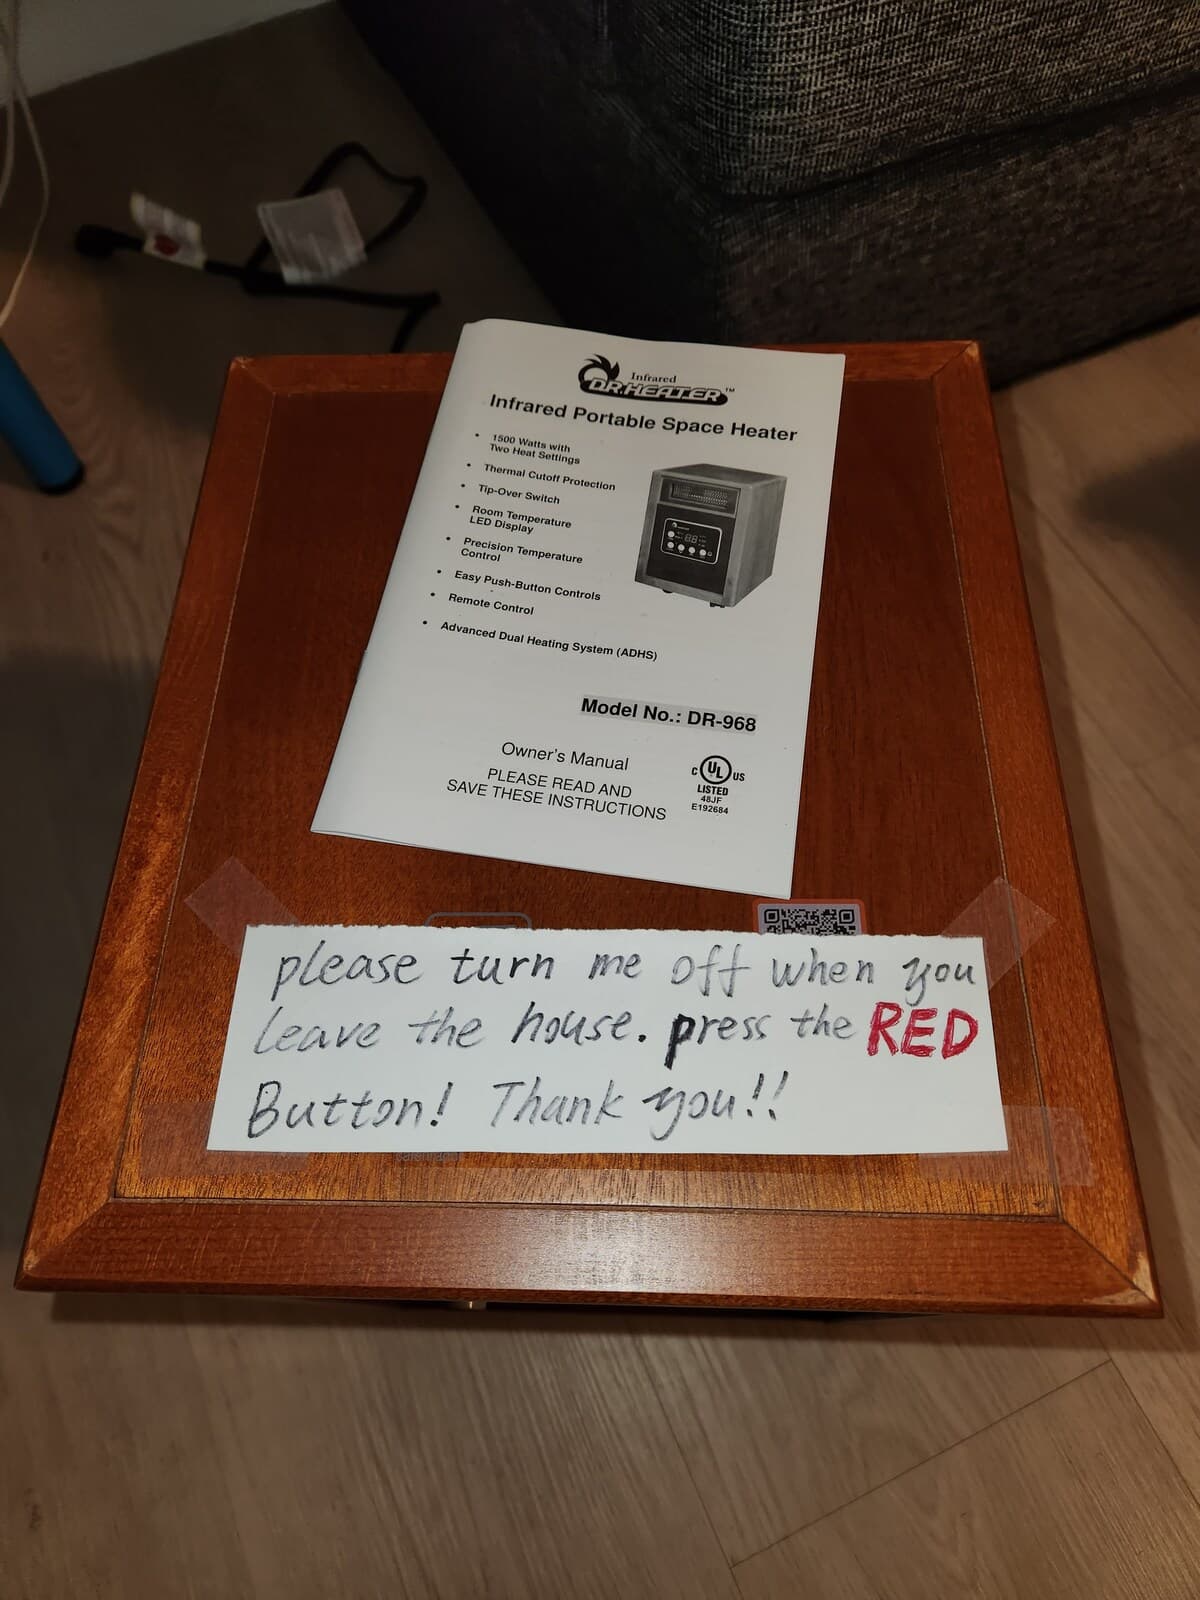 Infrared
DR. HEATER™
Infrared Portable Space Heater
• 1500 Watts with
Two Heat Settings
• Thermal Cutoff Protection
• Tip-Over Switch
• Room Temperature
LED Display
• Precision Temperature
Control
• Easy Push-Button Controls
• Remote Control
• Advanced Dual Heating System (ADHS)
Model No.: DR-968
Owner's Manual
PLEASE READ AND
SAVE THESE INSTRUCTIONS
C UL US
LISTED
48JF
E192684
please turn me off when you
leave the house. press the RED
Button! Thank you!!